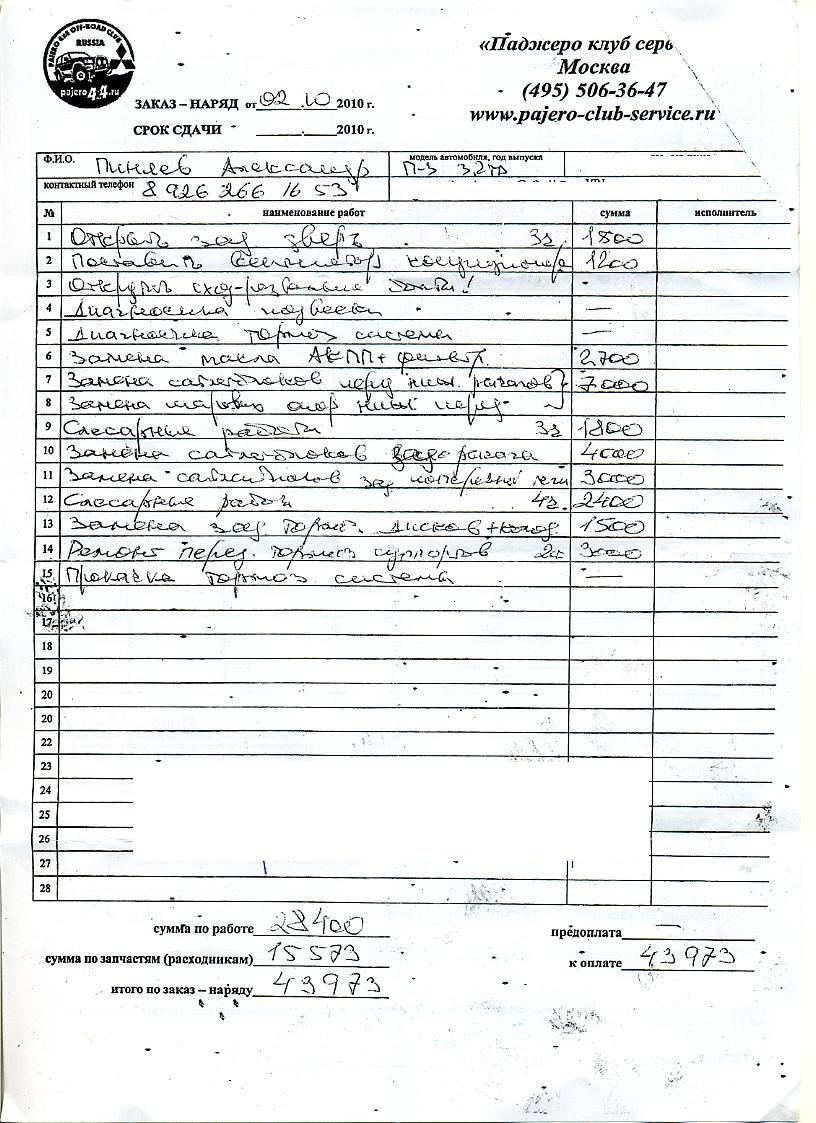 PAJERO 4x4 OFF-ROAD CLUB
RUSSIA
pajero4x4.ru
«Паджеро клуб серь
Москва
(495) 506-36-47
www.pajero-club-service.ru
ЗАКАЗ – НАРЯД от 02 . 10 2010 г.
СРОК СДАЧИ ______.____2010 г.
Ф.И.О. Александр
модель автомобиля, год выпуска П-3 3,2TD
контактный телефон 8 926 266 16 53
№ наименование работ сумма исполнитель
1 Открыть зад дверь 3з 1800
2 Поставить вентилятор кондиционера 1200
3 Открутить сход-развальные болты! -
4 Диагностика подвески —
5 Диагностика тормоз системы —
6 Замена масла АКПП + фильтр. 2700
7 Замена сайлентблоков перед ниж. рычагов } 7000
8 Замена шаровых опор ниж перед-
9 Слесарные работы 3з 1800
10 Замена сайлентблоков зад рычага 4000
11 Замена сайлентблоков зад поперечной тяги 3000
12 Слесарные работы 4з. 2400
13 Замена зад тормоз. дисков + колод. 1500
14 Ремонт перед. тормоз суппортов 2 3000
15 Прокачка тормоз системы —
16
17
18
19
20
20
22
23
24
25
26
27
28
сумма по работе 28400
предоплата —
сумма по запчастям (расходникам) 15573
к оплате 43973
итого по заказ – наряду 43973